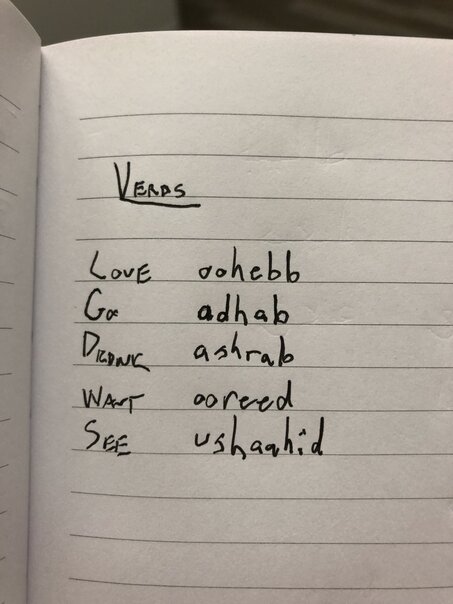 VERBS
LOVE oohebb
GO adhab
DRINK ashrab
WANT ooreed
SEE ushaahid